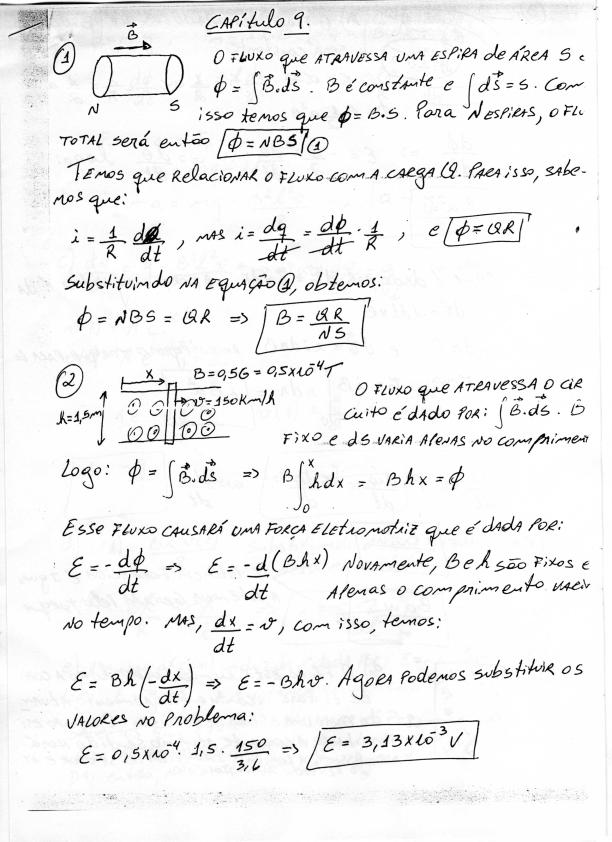 CAPÍtulo 9.
① B⃗
N S
O FLUXO que ATRAVESSA UMA ESPIRA de ÁREA S
ϕ = ∫B⃗.ds⃗. B é constante e ∫ds⃗ = S. Com
isso temos que ϕ = B.S. Para N ESPIRAS, O FLU
TOTAL será então ϕ = NBS ①
TEMOS que RELACIONAR O FLUXO COM A CARGA Q. PARA ISSO, SABE-
MOS que:
i = 1/R dϕ/dt , MAS i = dq/dt = dϕ/dt . 1/R ; e ϕ = QR
Substituindo NA EquAÇÃO ①, obtemos:
ϕ = NBS = QR => B = QR/NS
② x B = 0,5G = 0,5x10⁻⁴T
h=1,5m v=150km/h
O FLUXO que ATRAVESSA O CIR
cuito é DADO POR: ∫B⃗.ds⃗. B
FIXO e ds VARIA APENAS NO COMPRIMEN
Logo: ϕ = ∫B⃗.ds⃗ => B∫₀ˣ hdx = Bhx = ϕ
ESSE FLUXO CAUSARÁ UMA FORÇA ELETROMOTRIZ que é DADA POR:
ε = -dϕ/dt => ε = -d/dt (Bhx) NOVAMENTE, B e h SÃO FIXOS e
APENAS O COMPRIMENTO VARI
NO tempo. MAS, dx/dt = v, com isso, temos:
ε = Bh(-dx/dt) => ε = -Bhv. AGORA PODEMOS SUBSTITUIR OS
VALORES NO PROBLEMA:
ε = 0,5x10⁻⁴. 1,5. 150/3,6 => ε = 3,13x10⁻³V